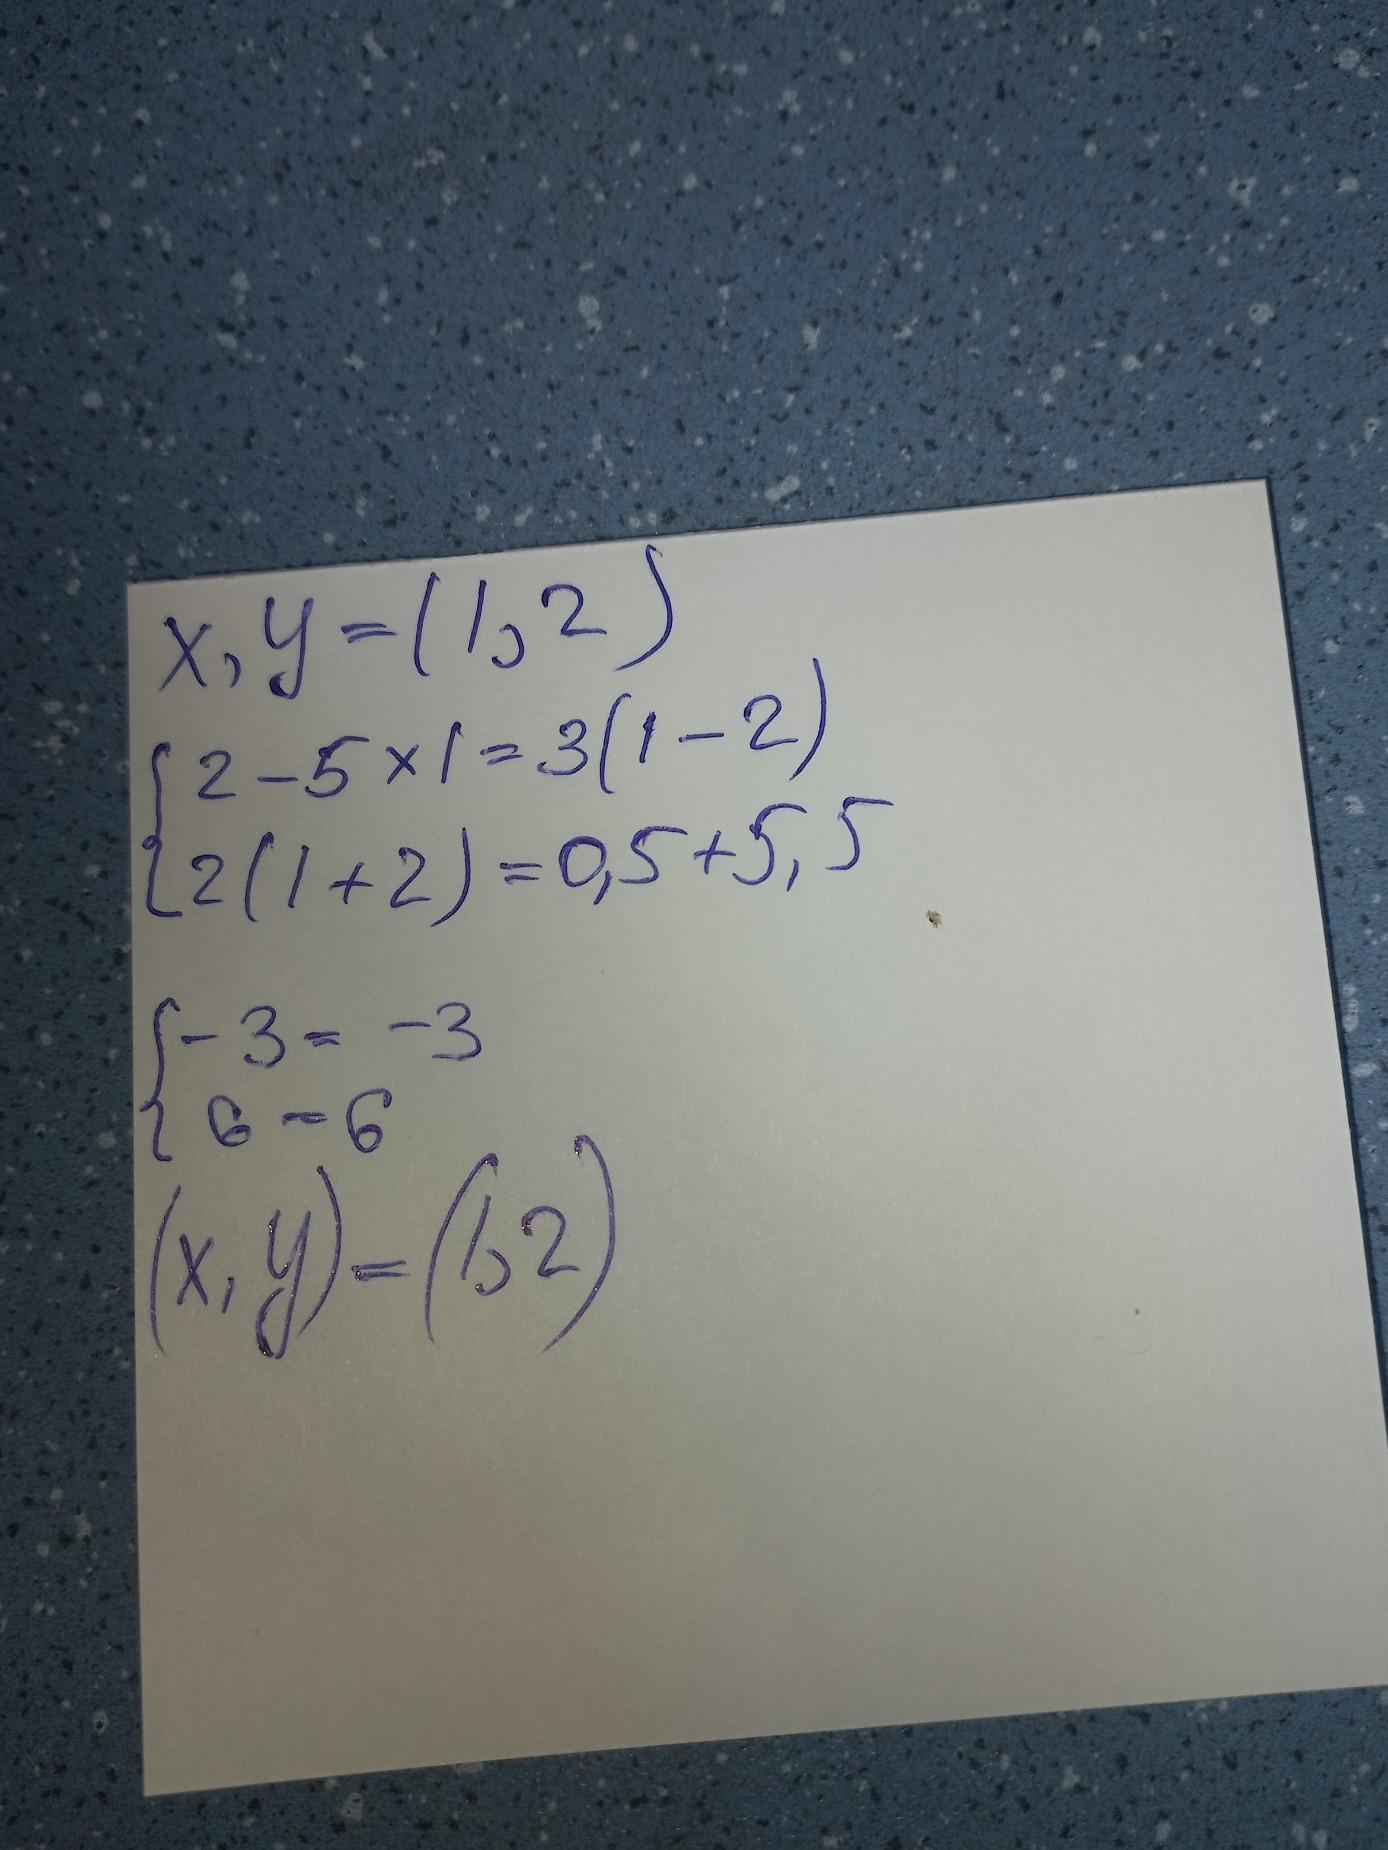 x, y = (1, 2)
{ 2 - 5 × 1 = 3(1 - 2)
{ 2(1 + 2) = 0,5 + 5,5
{ - 3 = - 3
{ 6 = 6
(x, y) = (1, 2)